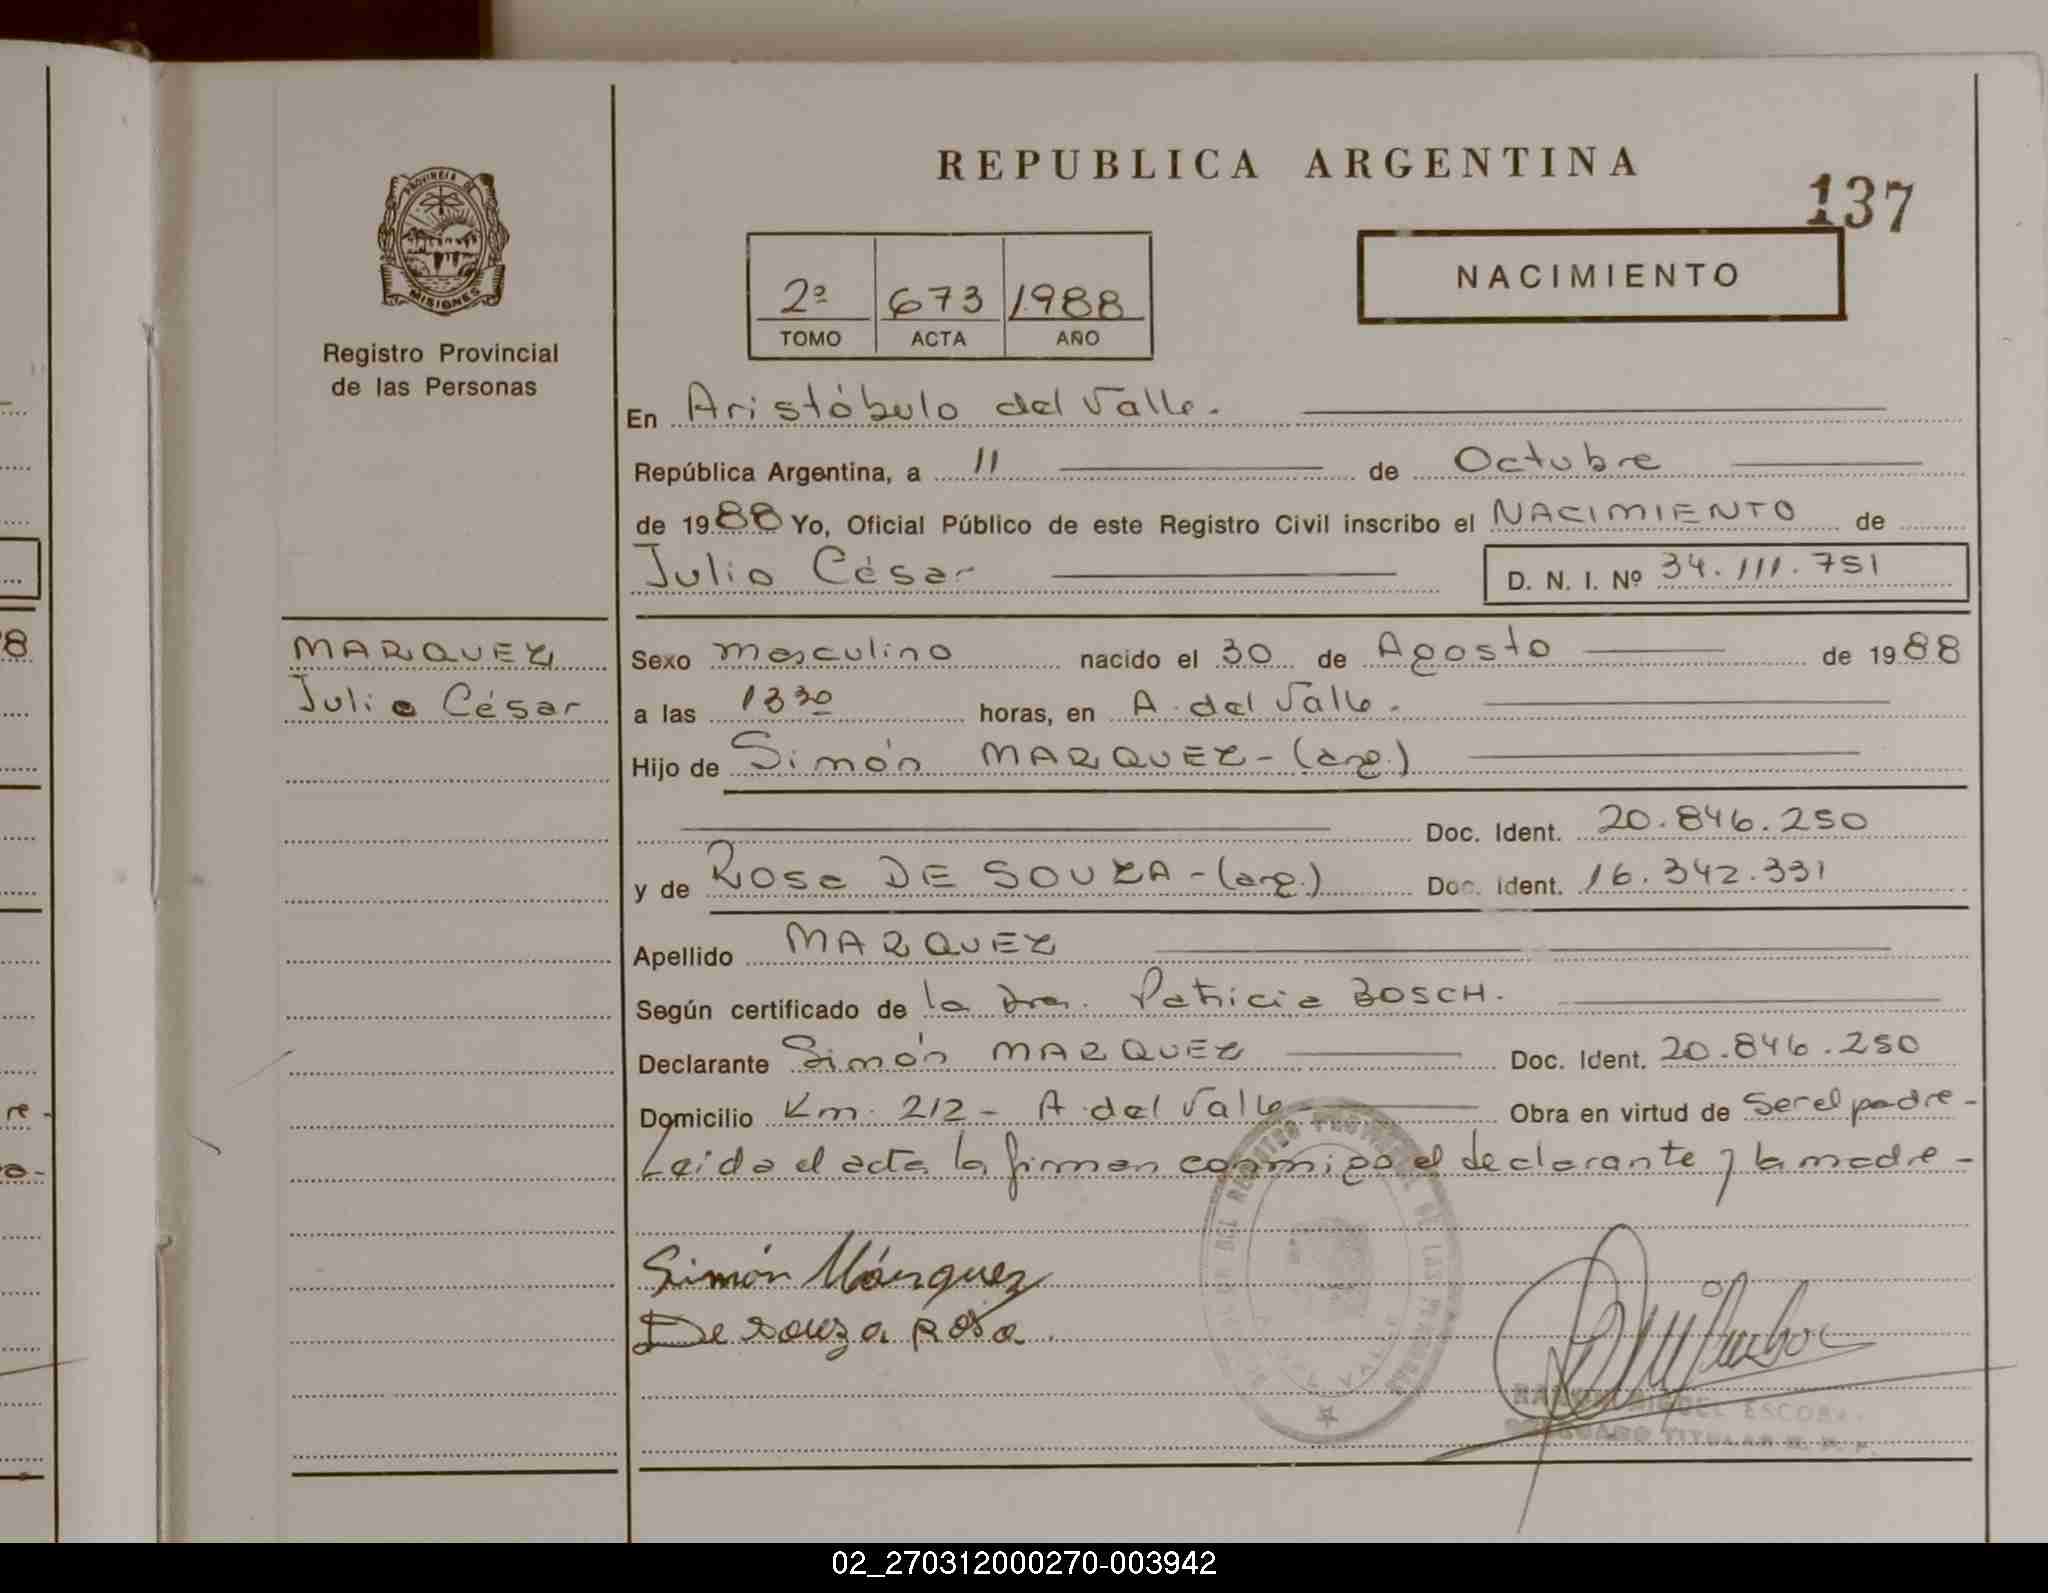 REPUBLICA ARGENTINA
137
PROVINCIA DE
MISIONES
Registro Provincial
de las Personas
2º 673 1988
TOMO ACTA AÑO
NACIMIENTO
En Aristóbulo del Valle.
República Argentina, a 11 de Octubre
de 1988 Yo, Oficial Público de este Registro Civil inscribo el NACIMIENTO de
Julio César D. N. I. Nº 34.111.751
MARQUEZ
Julio César
Sexo masculino nacido el 30 de Agosto de 1988
a las 13 30 horas, en A. del Valle.
Hijo de Simón MARQUEZ - (arg.)
Doc. Ident. 20.846.250
y de Rosa DE SOUZA - (arg.) Doc. Ident. 16.342.331
Apellido MARQUEZ
Según certificado de la Dra. Patricia BOSCH.
Declarante Simón MARQUEZ Doc. Ident. 20.846.250
Domicilio Km. 212 - A. del Valle - Obra en virtud de ser el padre -
Leida el acta la firman conmigo el declarante y la madre -
Simón Márquez
De souza Rosa.
ESCOBAR
TITULAR R. P. P.
8
re-
a-
02_270312000270-003942